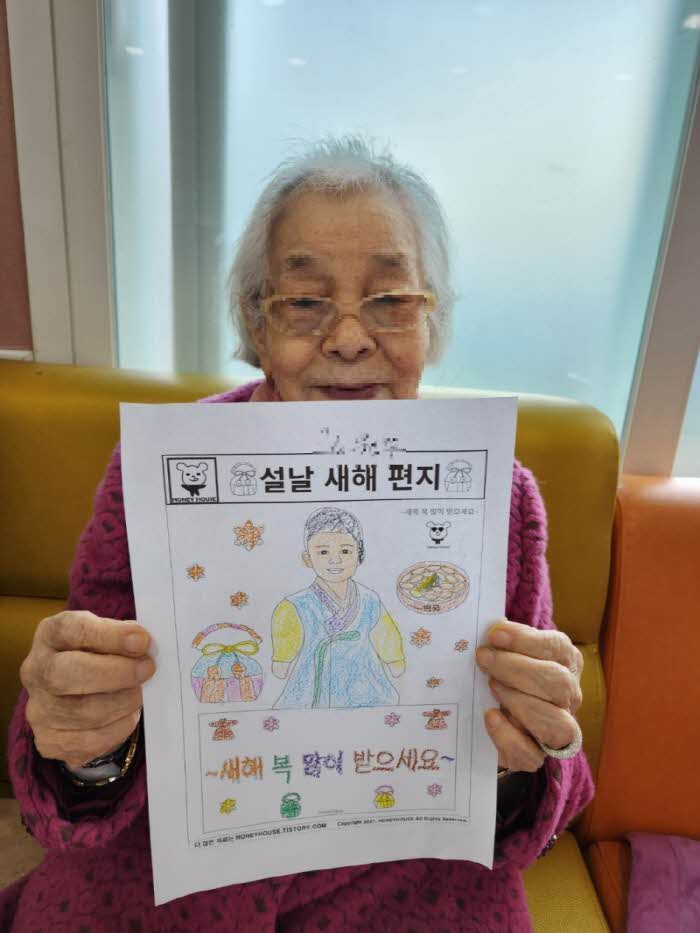 설날 새해 편지
HONEY HOUSE
~새해 복 많이 받으세요~
떡국
~새해 복 많이 받으세요~
더 많은 자료는 HONEYHOUSE.TISTORY.COM Copyright 2021. HONEYHOUSE All Rights Reserved.